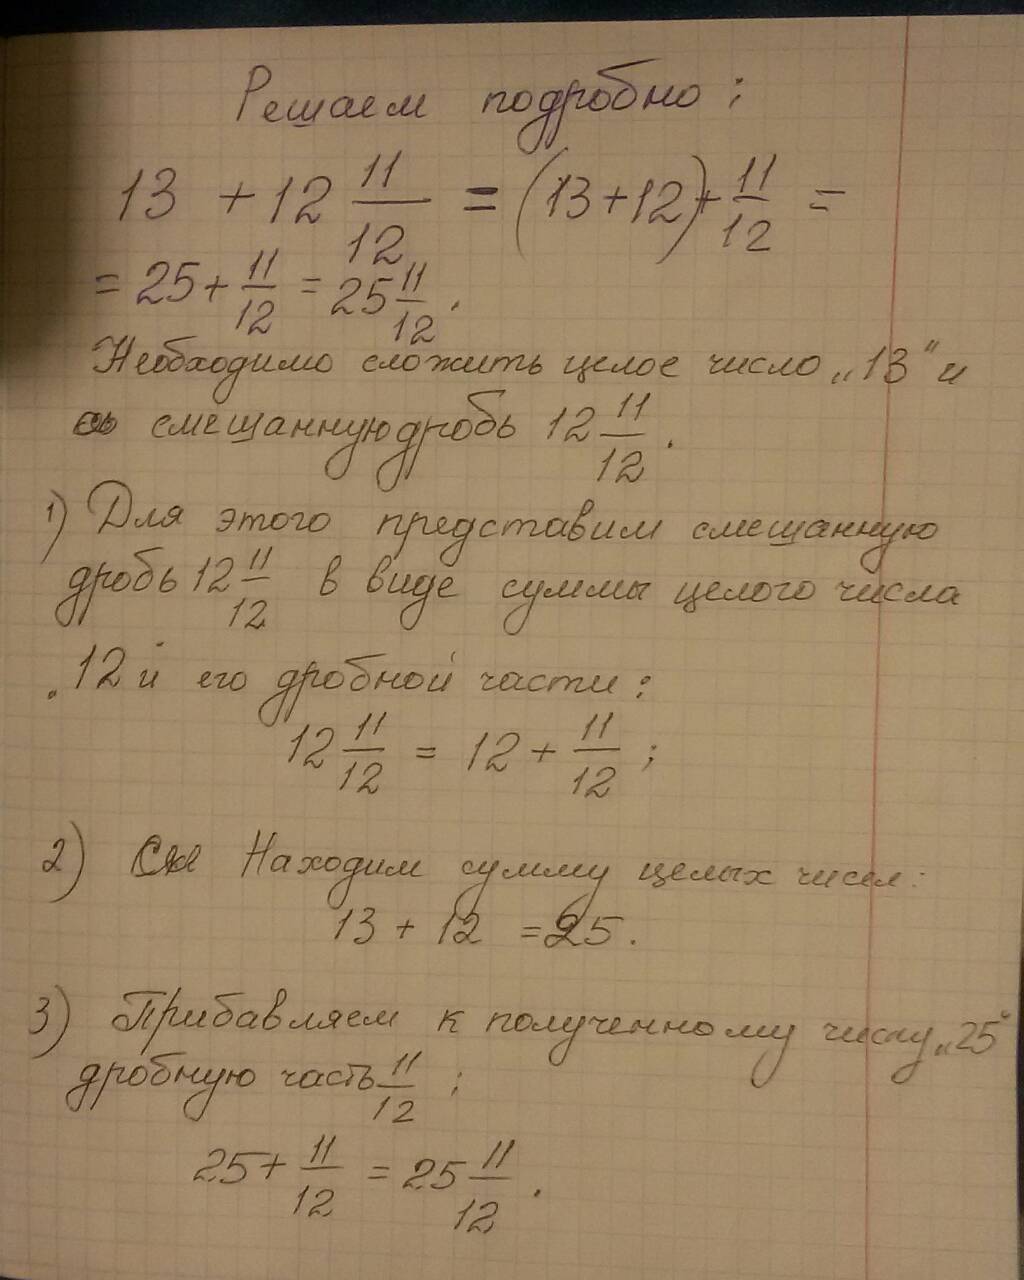 Решаем подробно:
13 + 12 11/12 = (13+12)+ 11/12 =
= 25+ 11/12 = 25 11/12.
Необходимо сложить целое число „13“ и
смешанную дробь 12 11/12.
1) Для этого представим смешанную
дробь 12 11/12 в виде суммы целого числа
12 и его дробной части:
12 11/12 = 12 + 11/12;
2) Находим сумму целых чисел:
13 + 12 = 25.
3) Прибавляем к полученному числу „25“
дробную часть 11/12;
25+ 11/12 = 25 11/12.